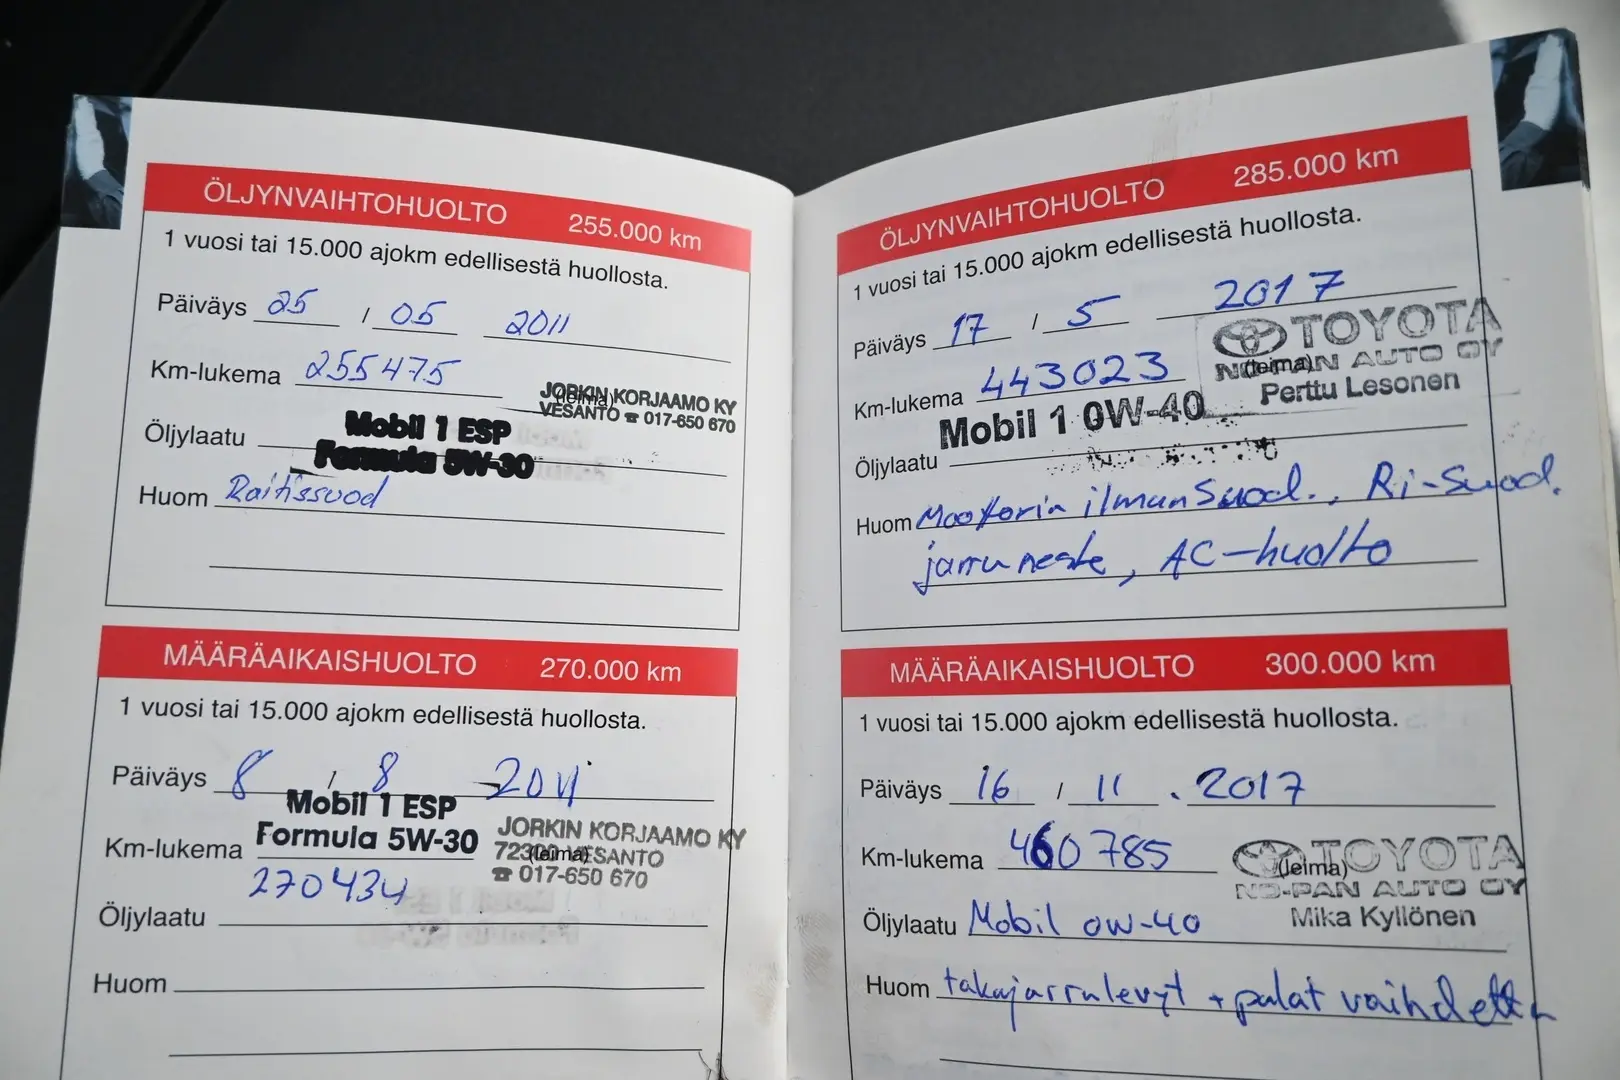 ÖLJYNVAIHTOHUOLTO 255.000 km
1 vuosi tai 15.000 ajokm edellisestä huollosta.
Päiväys 25 / 05 2011
Km-lukema 255475
(leima)
JORKIN KORJAAMO KY
VESANTO ☎ 017-650 670
Öljylaatu Mobil 1 ESP
Formula 5W-30
Huom Raitissuod
MÄÄRÄAIKAISHUOLTO 270.000 km
1 vuosi tai 15.000 ajokm edellisestä huollosta.
Päiväys 8 / 8 2011
Mobil 1 ESP
Formula 5W-30
Km-lukema 270434
(leima)
JORKIN KORJAAMO KY
VESANTO
☎ 017-650 670
Öljylaatu
Huom
ÖLJYNVAIHTOHUOLTO 285.000 km
1 vuosi tai 15.000 ajokm edellisestä huollosta.
Päiväys 17 / 5 2017
TOYOTA
AUTO OY
(leima)
Perttu Lesonen
Km-lukema 443023
Mobil 1 0W-40
Öljylaatu
Huom Moottorin ilmunsuod., Ri-suod.
jarruneste, AC-huolto
MÄÄRÄAIKAISHUOLTO 300.000 km
1 vuosi tai 15.000 ajokm edellisestä huollosta.
Päiväys 16 / 11 . 2017
Km-lukema 460785
(leima)
TOYOTA
NO-PAN AUTO OY
Mika Kyllönen
Öljylaatu Mobil 0W-40
Huom takajarrulevyt + palat vaihdettu